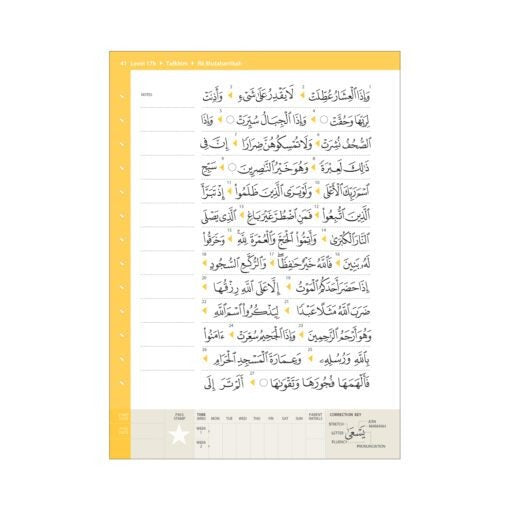 41 Level 17b ▸ Tafkhim ▸ Ra Mutatarrifah
NOTES
وَإِذَا ٱلْعِشَارُ عُطِّلَتْ لَا يَقْدِرُ عَلَىٰ شَىْءٍ وَأَذِنَتْ
لِرَبِّهَا وَحُقَّتْ وَإِذَا ٱلْجِبَالُ سُيِّرَتْ وَإِذَا
ٱلصُّحُفُ نُشِرَتْ وَلَا تُمْسِكُوهُنَّ ضِرَارًا إِنَّ فِى
ذَٰلِكَ لَعِبْرَةً وَهُوَ خَيْرُ ٱلنَّـٰصِرِينَ سَبِّحِ
ٱسْمَ رَبِّكَ ٱلْأَعْلَى وَلَوْ يَرَى ٱلَّذِينَ ظَلَمُوٓا۟ إِذْ تَبَرَّأَ
ٱلَّذِينَ ٱتُّبِعُوا۟ فَمَنِ ٱضْطُرَّ غَيْرَ بَاغٍ ٱلَّذِى يَصْلَى
ٱلنَّارَ ٱلْكُبْرَىٰ وَأَتِمُّوا۟ ٱلْحَجَّ وَٱلْعُمْرَةَ لِلَّهِ وَخَرَقُوا۟
لَهُۥ بَنِينَ فَٱللَّهُ خَيْرٌ حَـٰفِظًا وَٱلرُّكَّعِ ٱلسُّجُودِ
إِذَا حَضَرَ أَحَدَكُمُ ٱلْمَوْتُ إِلَّا عَلَى ٱللَّهِ رِزْقُهَا
ضَرَبَ ٱللَّهُ مَثَلًا عَبْدًا لِّيَذْكُرُوا۟ ٱسْمَ ٱللَّهِ
وَهُوَ أَرْحَمُ ٱلرَّٰحِمِينَ وَإِذَا ٱلْجَحِيمُ سُعِّرَتْ ءَامَنُوا۟
بِٱللَّهِ وَرُسُلِهِۦ وَعِمَارَةَ ٱلْمَسْجِدِ ٱلْحَرَامِ
فَأَلْهَمَهَا فُجُورَهَا وَتَقْوَىٰهَا أَلَمْ تَرَ إِلَى
PASS STAMP
TIME MINS MON TUE WED THU FRI SAT SUN PARENT INITIALS
WEEK 1
WEEK 2
CORRECTION KEY
STRETCH
LETTER
FLUENCY
يَسْعَىٰ
PRONUNCIATION